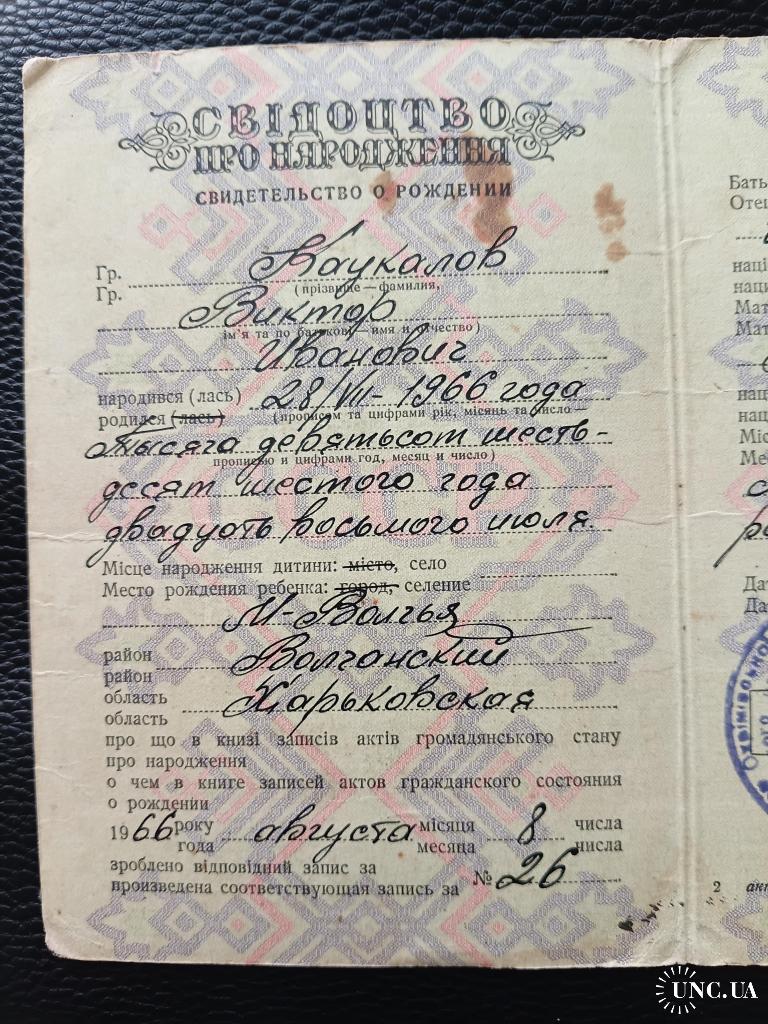 СВІДОЦТВО
ПРО НАРОДЖЕННЯ
СВИДЕТЕЛЬСТВО О РОЖДЕНИИ
Гр. Каукалов
Гр. (прізвище — фамилия,
Виктор
ім'я та по батькові — имя и отчество)
Иванович
народився (лась) 28/VII - 1966 года
родился (лась) (прописом та цифрами рік, місяць та число —
тысяча девятьсот шесть-
прописью и цифрами год, месяц и число)
десят шестого года
двадцать восьмого июля.
Місце народження дитини: місто, село
Место рождения ребенка: город, селение
М-Волчья
район Волчанский
район
область Харьковская
область
про що в книзі записів актів громадянського стану
про народження
о чем в книге записей актов гражданского состояния
о рождении
1966 року августа місяця 8 числа
года месяца числа
зроблено відповідний запис за
произведена соответствующая запись за № 26
Бать
Оте
наці
наци
Мат
Мат
нац
нац
Міс
Ме
Да
Да
2 ак
UNC.UA